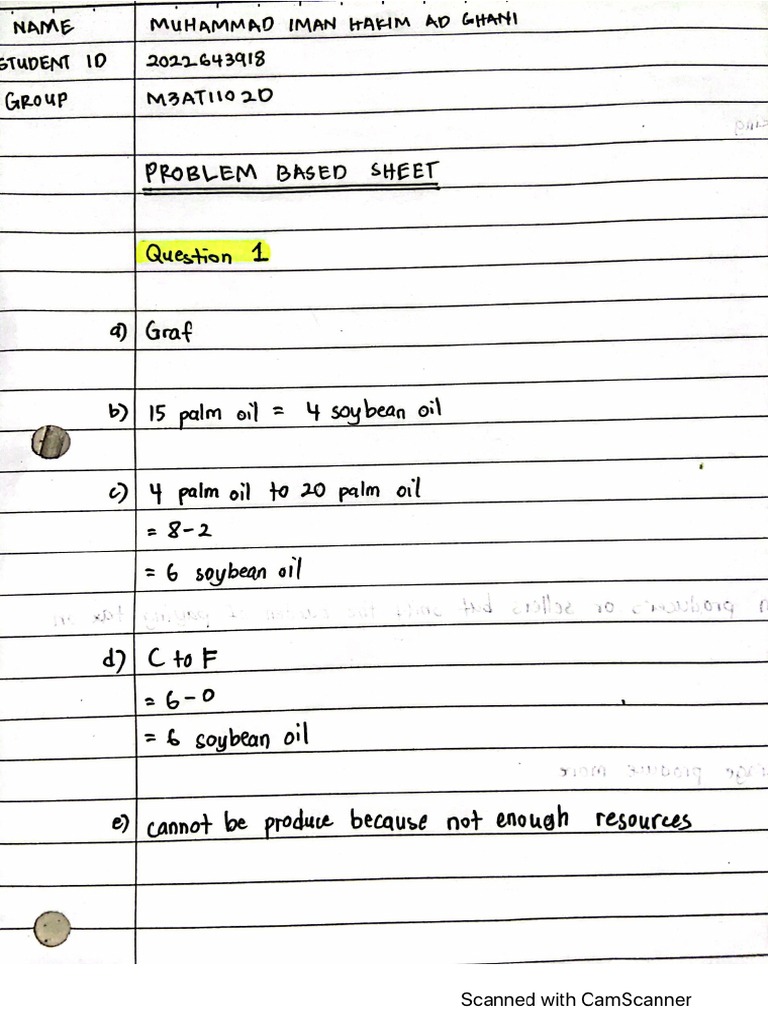 NAME MUHAMMAD IMAN HAKIM AD GHANI
STUDENT ID 2022643918
GROUP M3AT1102D
PROBLEM BASED SHEET
Question 1
a) Graf
b) 15 palm oil = 4 soybean oil
c) 4 palm oil to 20 palm oil
= 8-2
= 6 soybean oil
d) C to F
= 6-0
= 6 soybean oil
e) cannot be produce because not enough resources
Scanned with CamScanner